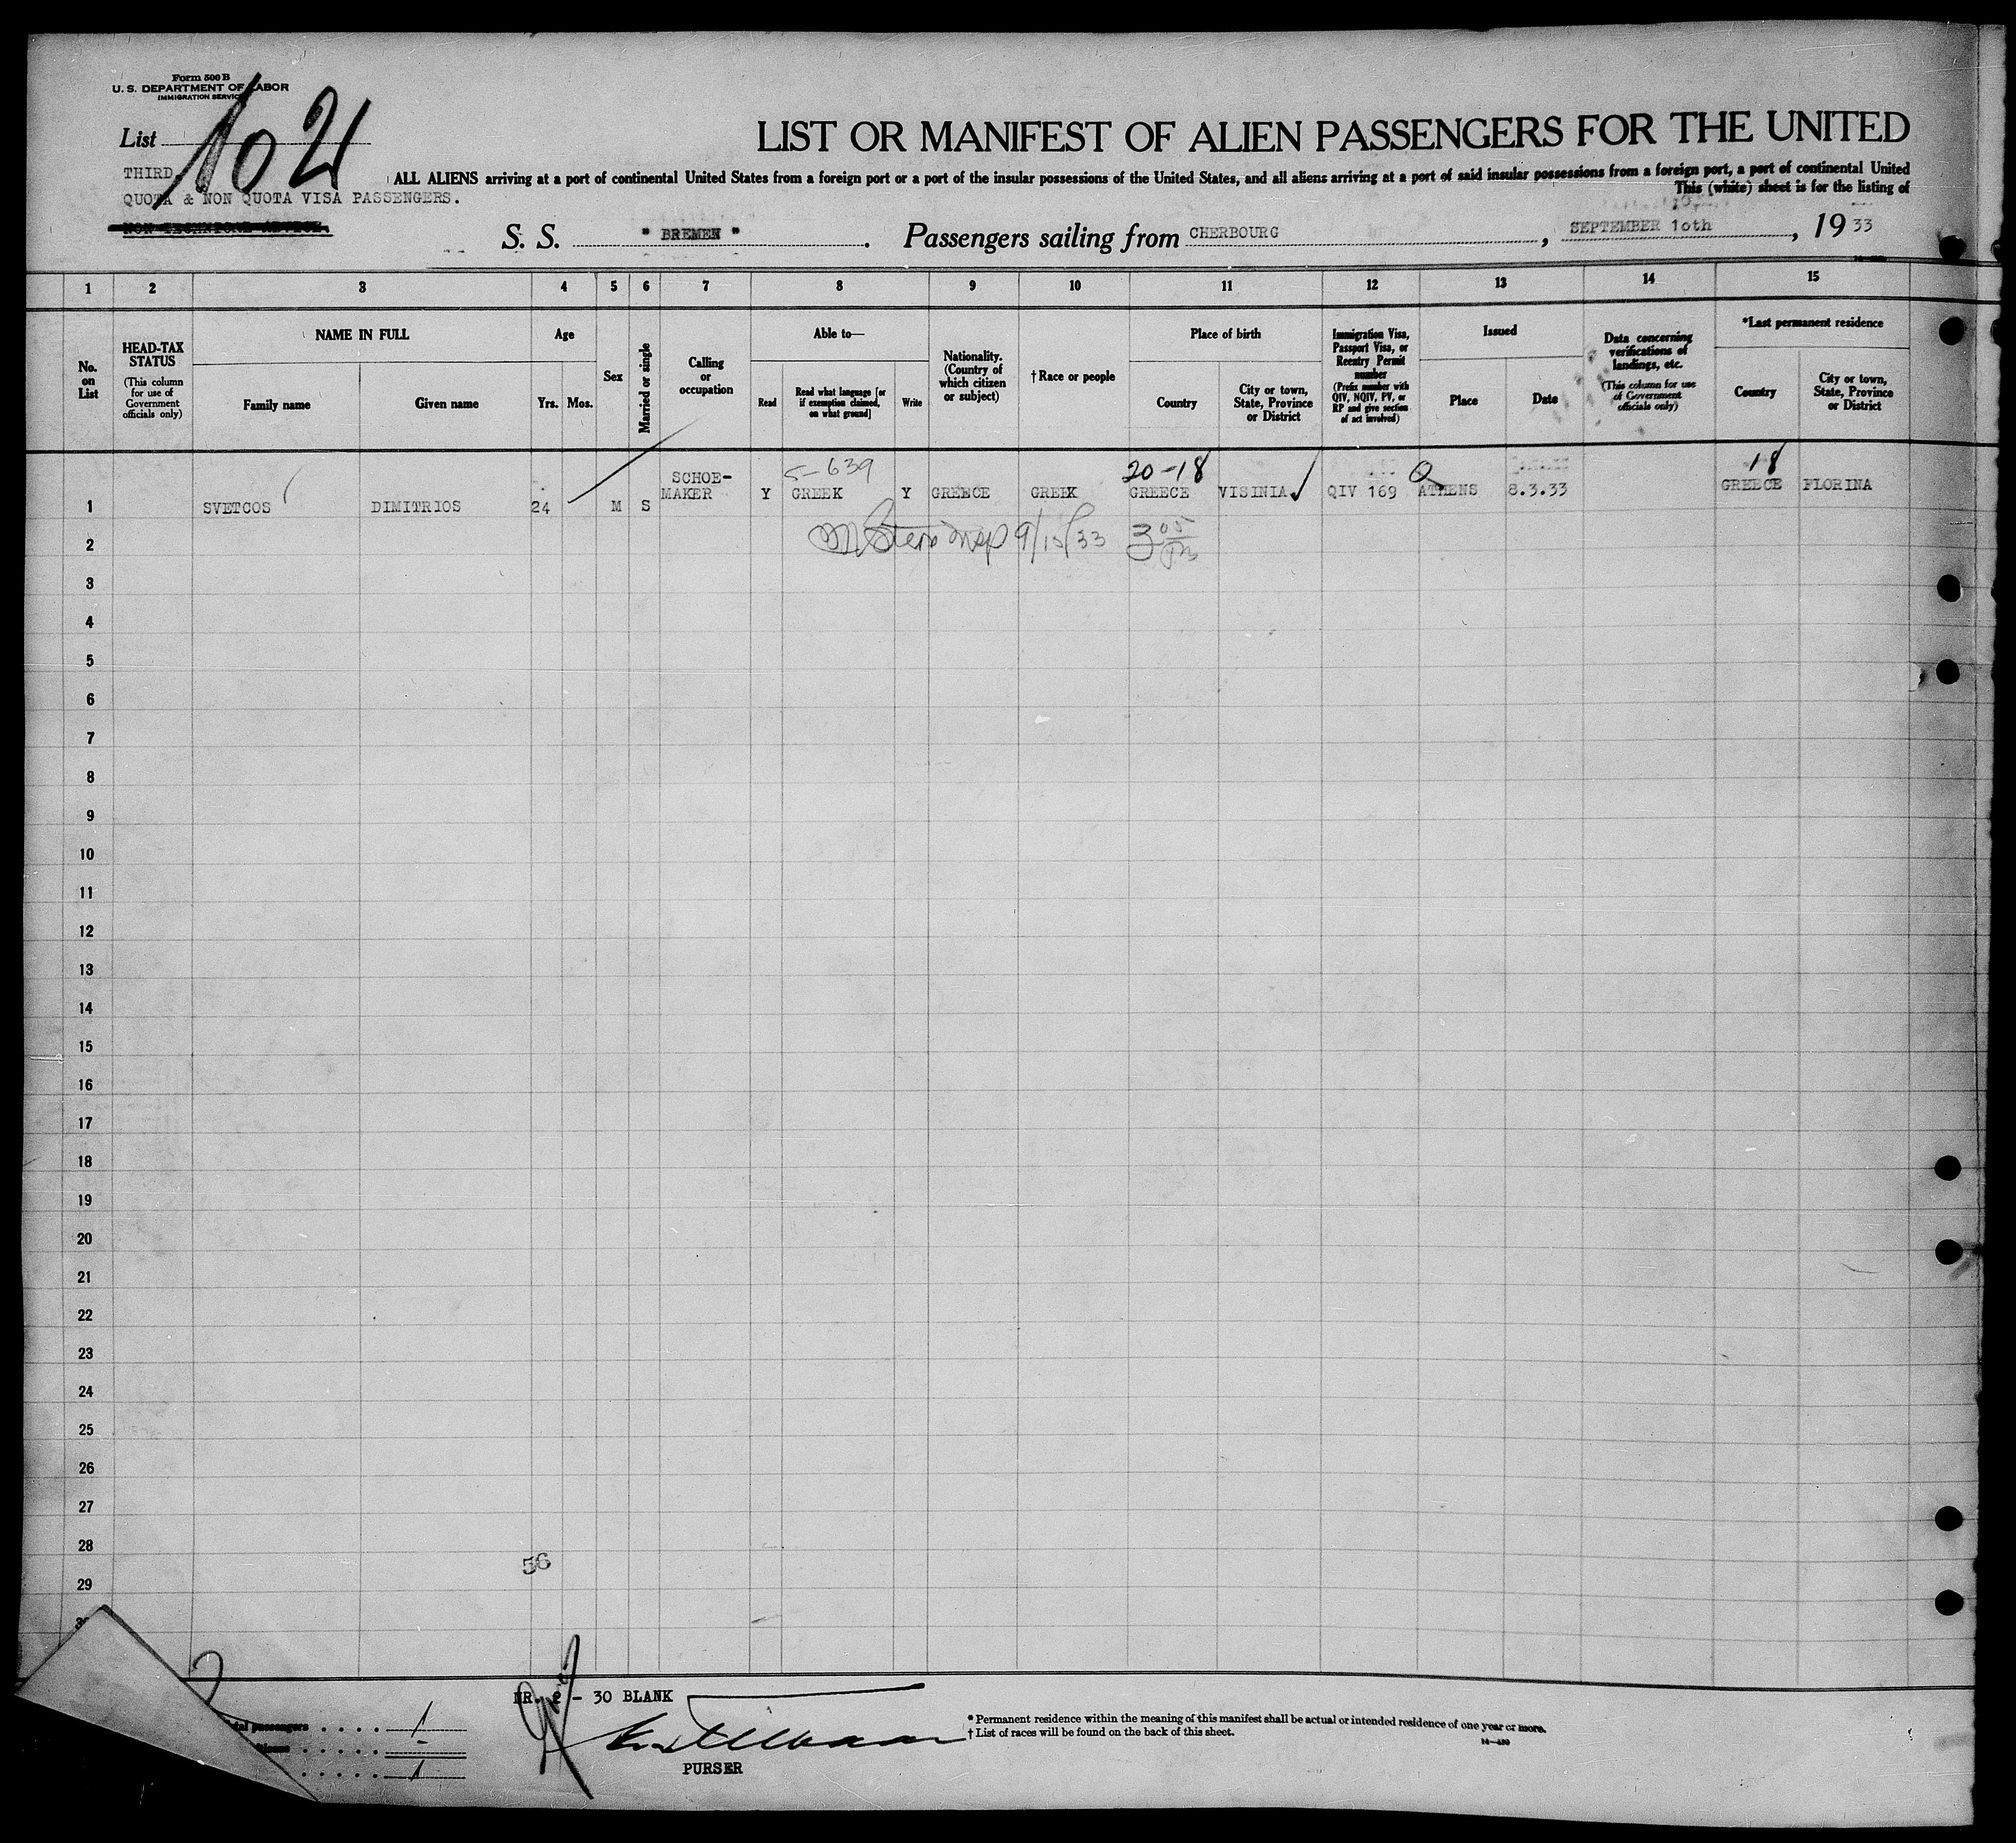 Form 500 B
U. S. DEPARTMENT OF LABOR
IMMIGRATION SERVICE
List 102
LIST OR MANIFEST OF ALIEN PASSENGERS FOR THE UNITED
THIRD
QUOTA & NON QUOTA VISA PASSENGERS.
ALL ALIENS arriving at a port of continental United States from a foreign port or a port of the insular possessions of the United States, and all aliens arriving at a port of said insular possessions from a foreign port, a port of continental United
This (white) sheet is for the listing of
S. S. " BREMEN ". Passengers sailing from CHERBOURG, SEPTEMBER 1oth, 19 33
1 2 3 4 5 6 7 8 9 10 11 12 13 14 15
No. on List
HEAD-TAX STATUS (This column for use of Government officials only)
NAME IN FULL
Family name
Given name
Age
Yrs. Mos.
Sex
Married or single
Calling or occupation
Able to—
Read
Read what language [or if exemption claimed, on what ground]
Write
Nationality. (Country of which citizen or subject)
† Race or people
Place of birth
Country
City or town, State, Province or District
Immigration Visa, Passport Visa, or Reentry Permit number (Prefix number with QIV, NQIV, PV, or RP and give section of act involved)
Issued
Place
Date
Data concerning verifications of landings, etc. (This column for use of Government officials only)
*Last permanent residence
Country
City or town, State, Province or District
5-639 20-18 Q 18
1 SVETCOS DIMITRIOS 24 M S SCHOE-MAKER Y GREEK Y GREECE GREEK GREECE VISINIA QIV 169 ATHENS 8.3.33 GREECE FLORINA
2 Insp 9/15/33 3 05 PM
3
4
5
6
7
8
9
10
11
12
13
14
15
16
17
18
19
20
21
22
23
24
25
26
27
28
56
29
NR. 2 - 30 BLANK
passengers . . . . 1
. . . . . -
. . . . . 1
PURSER
* Permanent residence within the meaning of this manifest shall be actual or intended residence of one year or more.
† List of races will be found on the back of this sheet.